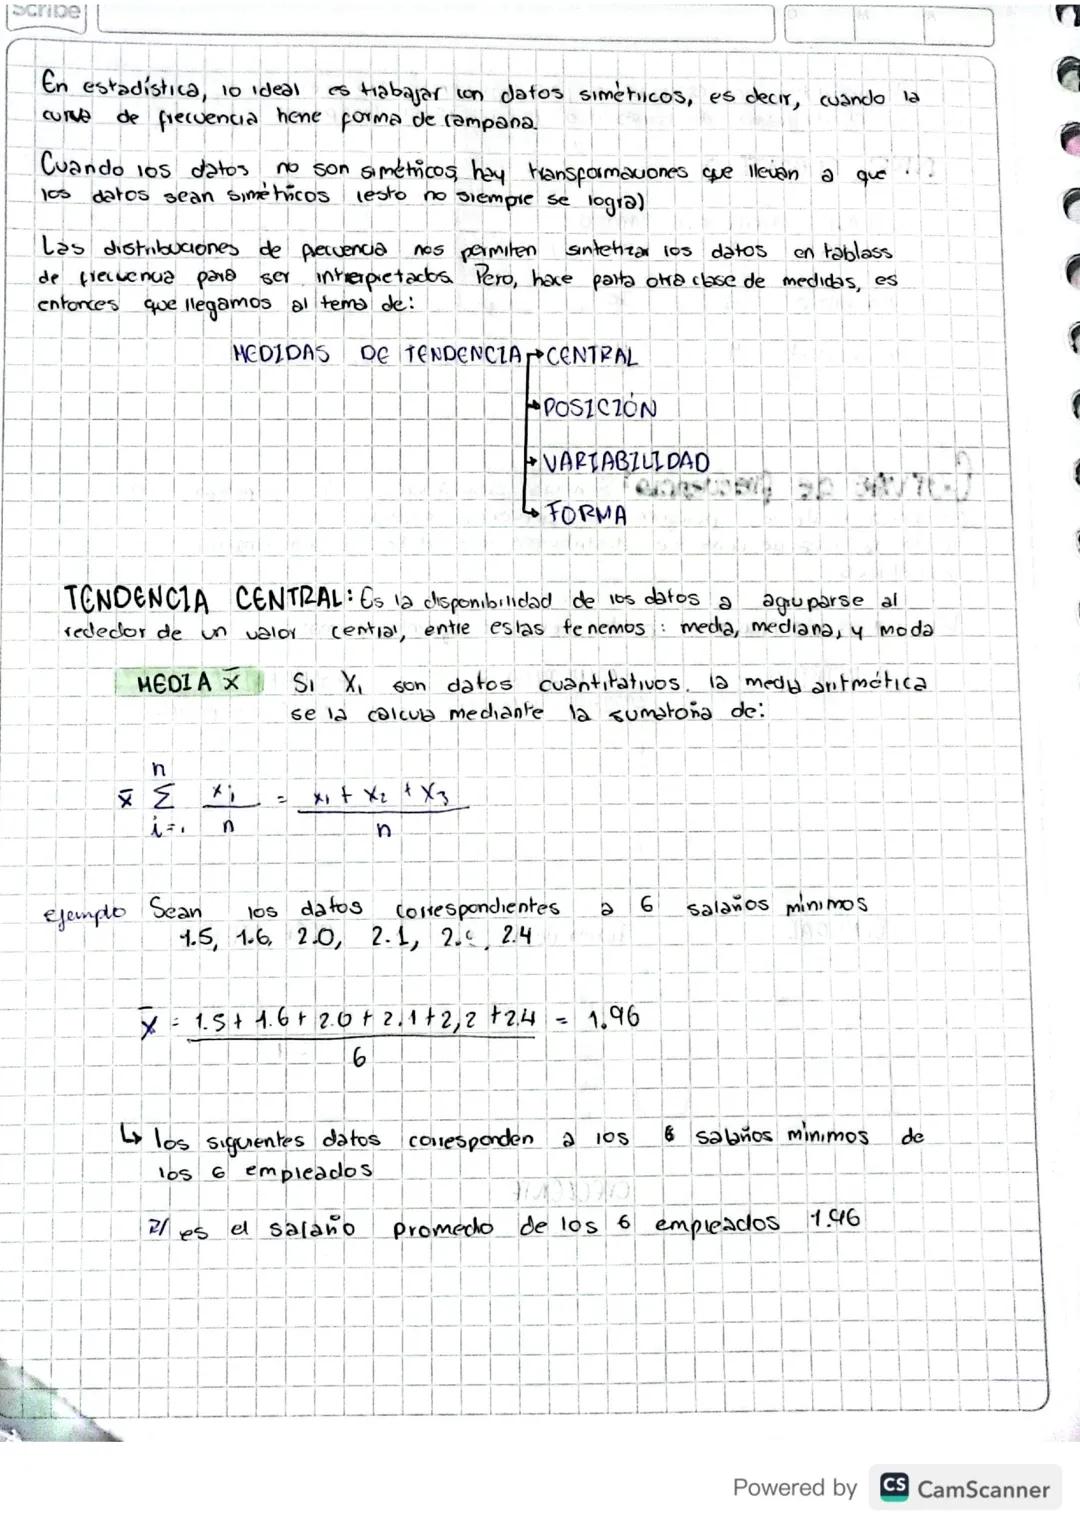 Scribe
En estadística, lo ideal es trabajar con datos simétricos, es decir, cuando la
curva de frecuencia tiene forma de campana.
Cuando los datos no son simétricos hay transformaciones que llevan a que
los datos sean simétricos (esto no siempre se logra)
Las distribuciones de frecuencia nos permiten sintetizar los datos en tablass
de frecuencia para ser interpretados. Pero, hace parta otra clase de medidas, es
entonces que llegamos al tema de:
MEDIDAS DE TENDENCIA → CENTRAL
→ POSICIÓN
→ VARIABILIDAD
Curvas de frecuencia
→ FORMA
TENDENCIA CENTRAL: Es la disponibilidad de los datos a agruparse al
rededor de un valor central, entre estas tenemos: media, mediana, y moda
MEDIA x̄ Si Xi son datos cuantitativos, la media aritmética
se la calcula mediante la sumatoria de:
n
x̄ Σ xi = x1 + x2 + x3
i=1 n n
ejemplo Sean los datos correspondientes a 6 salarios mínimos
1.5, 1.6, 2.0, 2.1, 2. , 2.4
x̄ = 1.5 + 1.6 + 2.0 + 2.1 + 2,2 + 2.4 = 1.96
6
↳ los siguientes datos corresponden a los 6 salarios mínimos de
los 6 empleados
2/ es el salario promedio de los 6 empleados 1.96
Powered by CS CamScanner